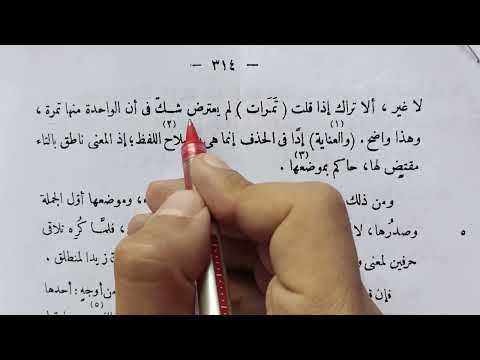 — ٣١٤ —
لا غير ، ألا تراك إذا قلت ( تَمَرات ) لم يعترض شكّ فى أن الواحدة منها تمرة ،
وهذا واضح . (١) (والعناية) إذًا فى الحذف إنما هى (٢) لاح اللفظ؛ إذ المعنى ناطق بالتاء
مقتضٍ لها، حاكم بموضعها (٣) .
ومن ذلك ، وموضعها أوّل الجملة
٥ وصدرُها، لا ، فلمّا كُره تلاقى
حرفين لمعنى و ة زيدا لمنطلق .
فإن ق من أوجهٍ : أحدها
(٥)